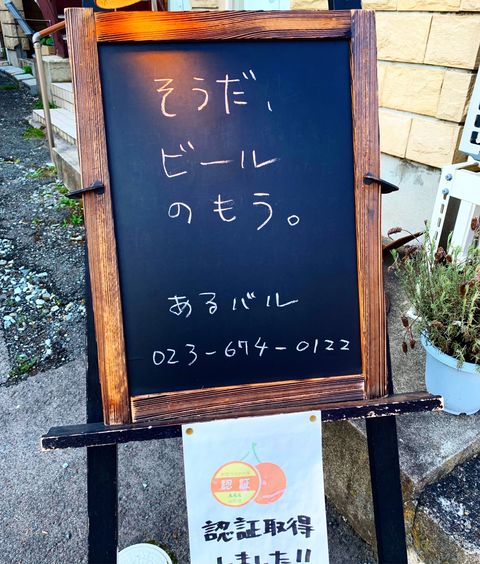 そうだ、
ビール
のもう。
あるバル
023-674-0122
認証
認証取得
しました!!